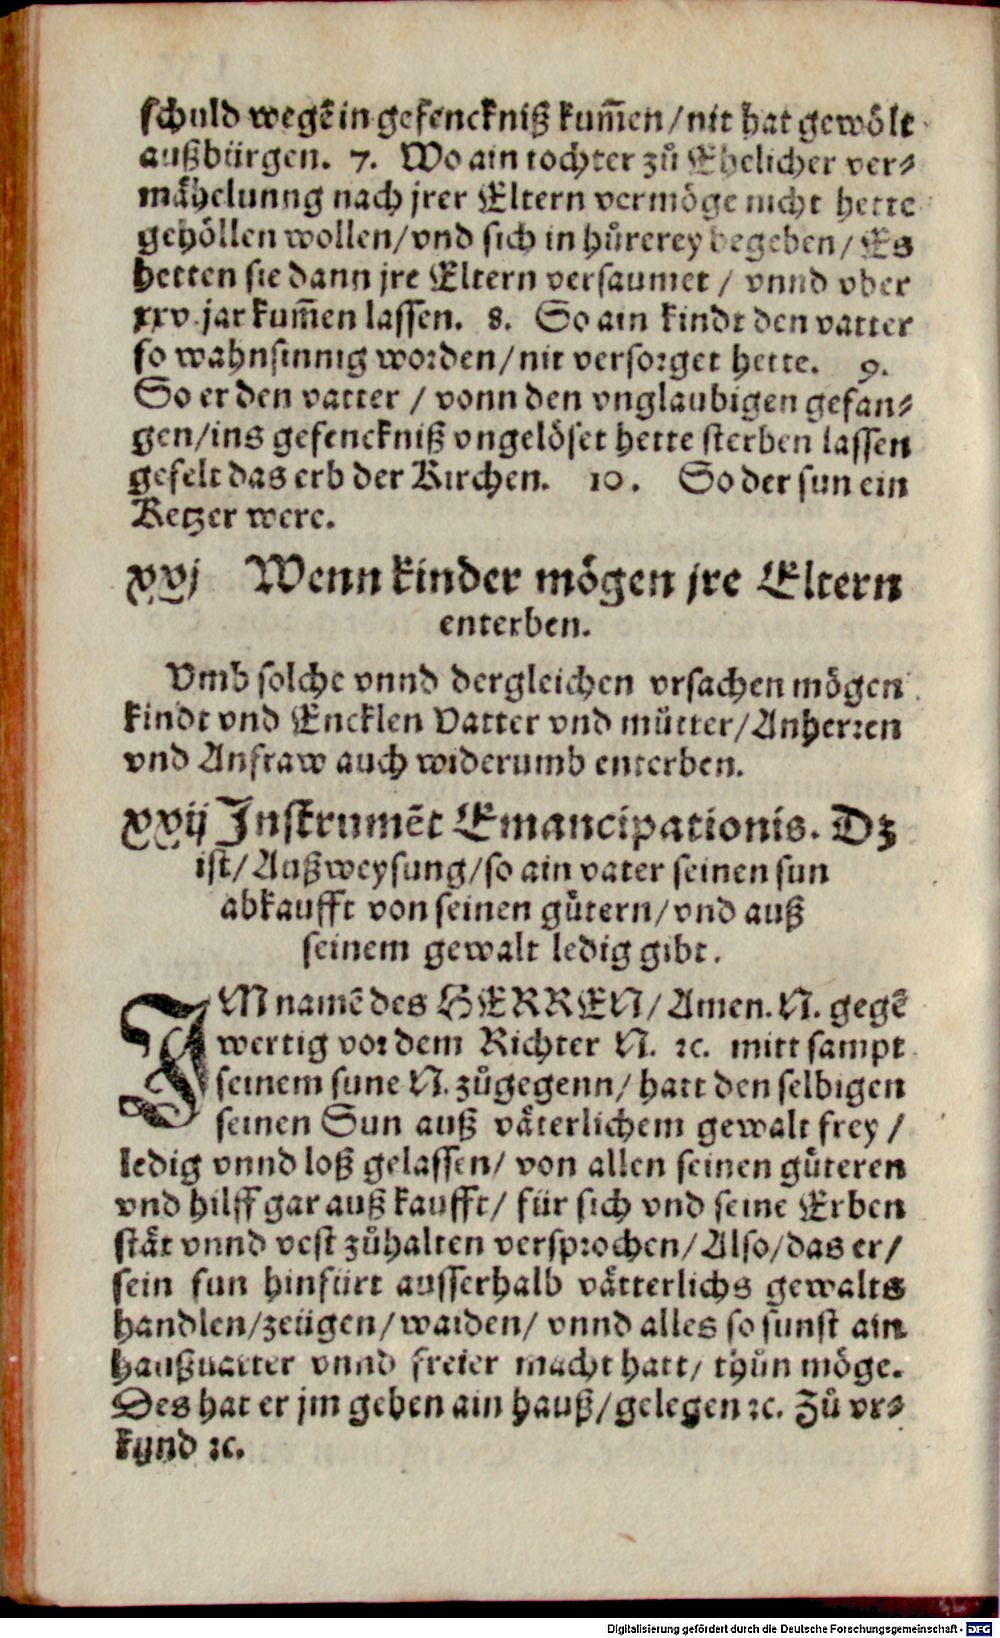 schuld wegẽ in gefenckniß kum̃en / nit hat gewölt
außbürgen. 7. Wo ain tochter zů Ehelicher ver⸗
mähelunng nach jrer Eltern vermöge nicht hette
gehöllen wollen / vnd sich in hůrerey begeben / Es
hetten sie dann jre Eltern versaumet / vnnd vber
xxv jar kum̃en lassen. 8. So ain kindt den vatter
so wahnsinnig worden / nit versorget hette. 9.
So er den vatter / vonn den vnglaubigen gefan⸗
gen / ins gefenckniß vngelöset hette sterben lassen
gefelt das erb der Kirchen. 10. So der sun ein
Ketzer were.
xxvj Wenn kinder mögen jre Eltern
enterben.
Vmb solche vnnd dergleichen vrsachen mögen
kindt vnd Encklen Vatter vnd můtter / Anherren
vnd Anfraw auch widerumb enterben.
xxvij Instrumẽt Emancipationis. Dz
ist / Außweysung / so ain vater seinen sun
abkaufft von seinen gůtern / vnd auß
seinem gewalt ledig gibt.
IM namẽ des HERREN / Amen. N. gegẽ
wertig vor dem Richter N. ꝛc. mitt sampt
seinem sune N. zůgegenn / hatt den selbigen
seinen Sun auß väterlichem gewalt frey /
ledig vnnd loß gelassen / von allen seinen gůteren
vnd hilff gar auß kaufft / für sich vnd seine Erben
stät vnnd vest zůhalten versprochen / Also / das er /
sein sun hinfürt ausserhalb vätterlichs gewalts
handlen / zeügen / waiden / vnnd alles so sunst ain
haußuatter vnnd freier macht hatt / thůn möge.
Des hat er jm geben ain hauß / gelegen ꝛc. Zů vr⸗
kynd ꝛc.
Digitalisierung gefördert durch die Deutsche Forschungsgemeinschaft - DFG